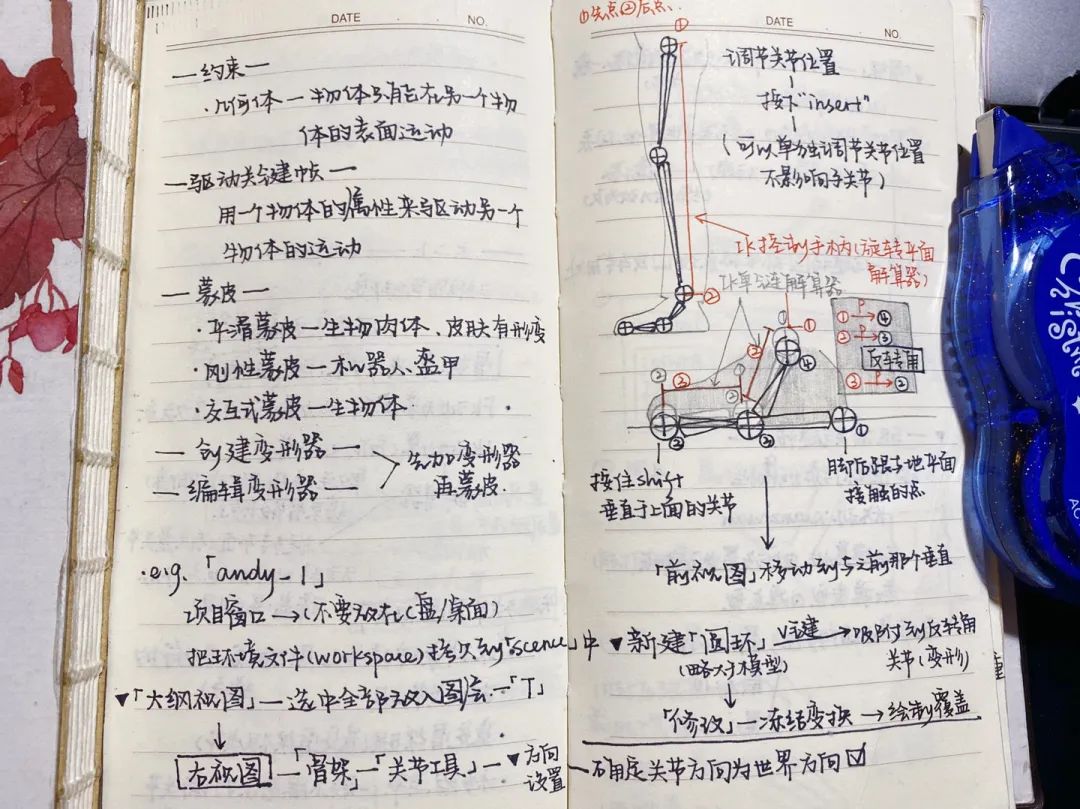 DATE NO.
—约束—
·几何体—物体只能在另一个物
体的表面运动
—驱动关键帧—
用一个物体的属性来驱动另一个
物体的运动
—蒙皮—
·平滑蒙皮—生物肉体、皮肤有形变
·刚性蒙皮—机器人、盔甲
·交互式蒙皮—生物体
—创建变形器—
—编辑变形器—
先加变形器
再蒙皮
·e.g.「andy-1」
项目窗口→(不要放在C盘/桌面)
把环境文件(workspace)拷贝到「scence」中
▼「大纲视图」—选中全部放入图层—「T」
右视图—「骨架」—「关节工具」—▼方向
设置
DATE NO.
①先点②后点.
①
调节关节位置
按下"insert"
(可以单独调节关节位置
不影响子关节)
IK控制手柄(旋转平面
解算器)
IK单链解算器
②
①P→④
②P→③
反转角
③P→②
① ② ③ ④
按住shift
垂直于上面的关节
脚后跟与地平面
接触的点
「前视图」移动到与之前那个垂直
▼新建「圆环」V键→吸附到反转角
(略大于模型) 关节(变形)
「修改」—冻结变换→绘制覆盖
—确定关节方向为世界方向☑